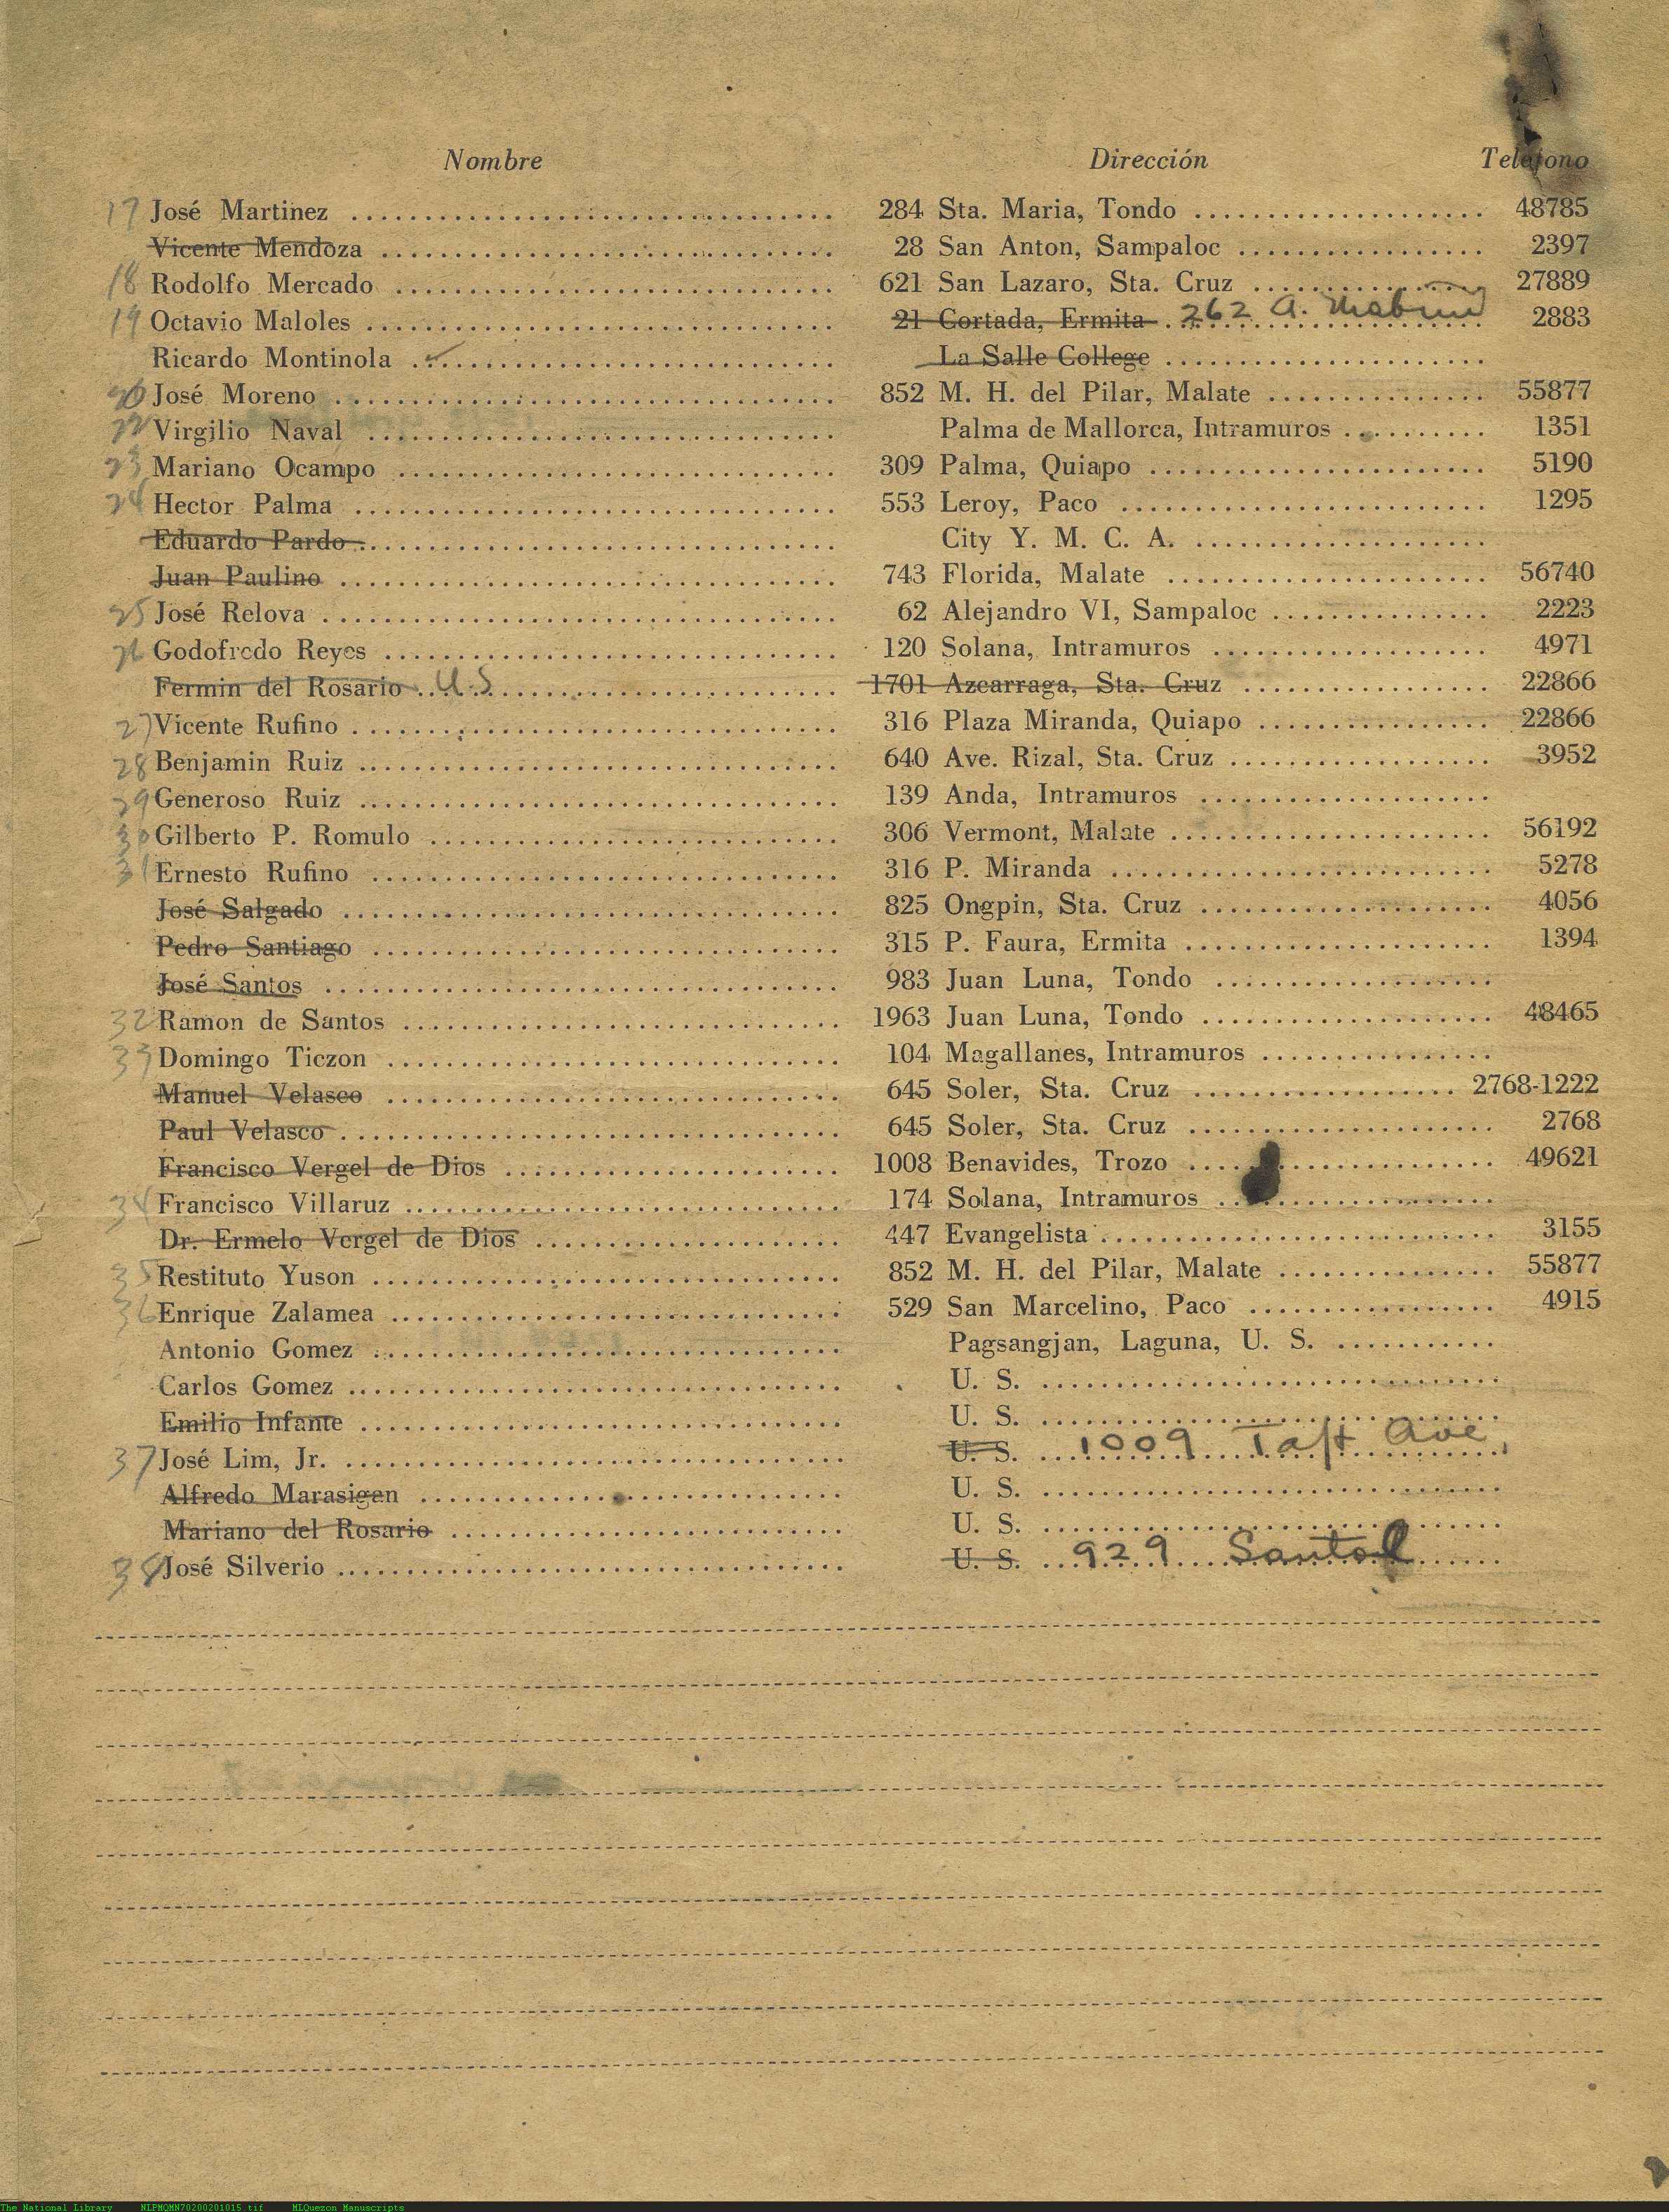 Nombre Dirección Teléfono
17 José Martinez 284 Sta. Maria, Tondo 48785
Vicente Mendoza 28 San Anton, Sampaloc 2397
18 Rodolfo Mercado 621 San Lazaro, Sta. Cruz 27889
19 Octavio Maloles 21 Cortada, Ermita 262 A. Mabini 2883
Ricardo Montinola La Salle College
José Moreno 852 M. H. del Pilar, Malate 55877
22 Virgilio Naval Palma de Mallorca, Intramuros 1351
23 Mariano Ocampo 309 Palma, Quiapo 5190
24 Hector Palma 553 Leroy, Paco 1295
Eduardo Pardo City Y. M. C. A.
Juan Paulino 743 Florida, Malate 56740
25 José Relova 62 Alejandro VI, Sampaloc 2223
26 Godofredo Reyes 120 Solana, Intramuros 4971
Fermin del Rosario U.S. 1701 Azcarraga, Sta. Cruz 22866
27 Vicente Rufino 316 Plaza Miranda, Quiapo 22866
28 Benjamin Ruiz 640 Ave. Rizal, Sta. Cruz 3952
29 Generoso Ruiz 139 Anda, Intramuros
30 Gilberto P. Romulo 306 Vermont, Malate 56192
31 Ernesto Rufino 316 P. Miranda 5278
José Salgado 825 Ongpin, Sta. Cruz 4056
Pedro Santiago 315 P. Faura, Ermita 1394
José Santos 983 Juan Luna, Tondo
32 Ramon de Santos 1963 Juan Luna, Tondo 48465
33 Domingo Ticzon 104 Magallanes, Intramuros
Manuel Velasco 645 Soler, Sta. Cruz 2768-1222
Paul Velasco 645 Soler, Sta. Cruz 2768
Francisco Vergel de Dios 1008 Benavides, Trozo 49621
34 Francisco Villaruz 174 Solana, Intramuros
Dr. Ermelo Vergel de Dios 447 Evangelista 3155
35 Restituto Yuson 852 M. H. del Pilar, Malate 55877
36 Enrique Zalamea 529 San Marcelino, Paco 4915
Antonio Gomez Pagsangjan, Laguna, U. S.
Carlos Gomez U. S.
Emilio Infante U. S.
37 José Lim, Jr. U. S. 1009 Taft Ave.
Alfredo Marasigan U. S.
Mariano del Rosario U. S.
38 José Silverio U. S. 929 Santol
The National Library NLPMQMN70200201015.tif MLQuezon Manuscripts